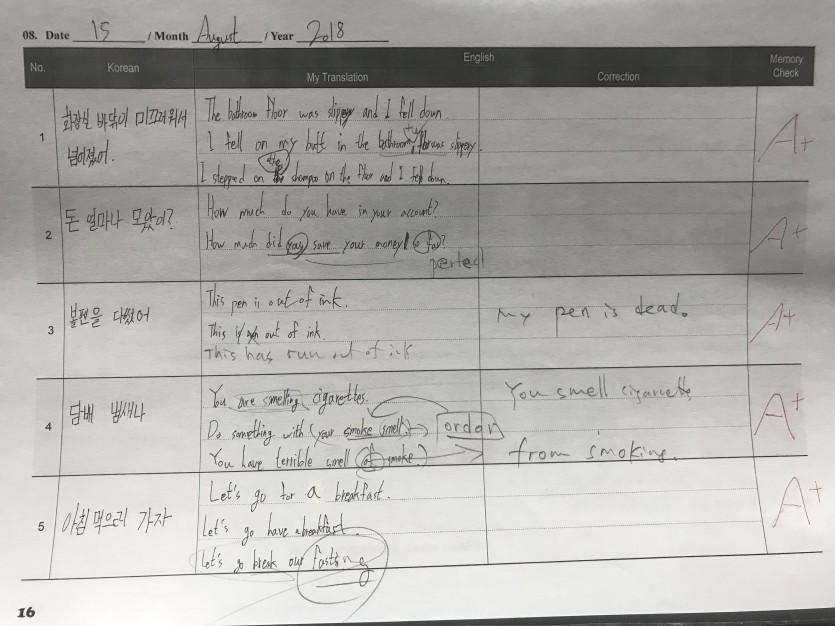 08. Date 15 / Month August / Year 2018
No. Korean English Memory Check
My Translation Correction
1 화장실 바닥이 미끄러워서 넘어졌어.
The bathroom floor was slippery and I fell down.
I fell on my butt in the bathroom, floor was slippery.
I stepped on the shampoo on the floor and I fell down.
A+
2 돈 얼마나 모았어?
How much do you have in your account?
How much did you save your money so far?
perfect
A+
3 볼펜을 다썼어
This pen is out of ink.
My pen is dead.
This is out of ink.
This has run out of ink
A+
4 담배 냄새나
You are smelling cigarettes.
You smell cigarette
Do something with (your smoke smell) → ordor
You have terrible smell of smoke.
from smoking.
A+
5 아침 먹으러 가자
Let's go for a breakfast.
Let's go have a breakfast.
Let's go break our fasting
A+
16